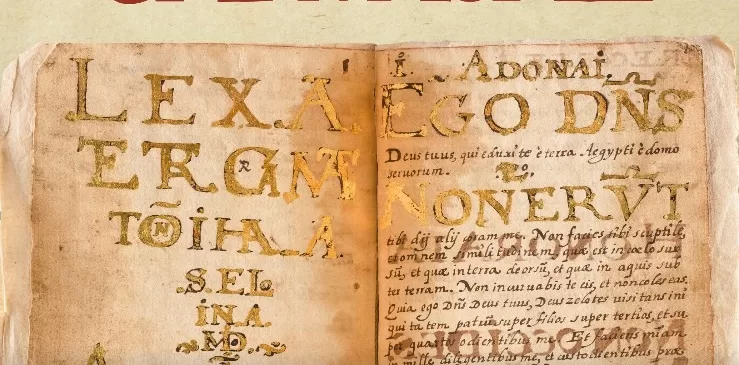 LEXA.A.
ERGMT
TOÑIHA..A.
.S.EL.
INA.
.MO.
I. ADONAI.
EGO DNS
Deus tuus, qui eduxi te è terra Aegypti è domo
seruorum.
NON ERVT
tibi dij alij coram me. Non facies tibi sculptile,
et omnem similitudinem, quae est in coelo sur
sū, et quae in terra deorsū, et quae in aquis sub
ter terram. Non incuruabis te eis, et non coles eas.
Quia ego Dns Deus tuus, Deus zelotes visitans ini
quitatem patrū super filios super tertios, et su
per quartos odientibus me. Et faciens miam
in mille diligentibus me, et custodientibus prae